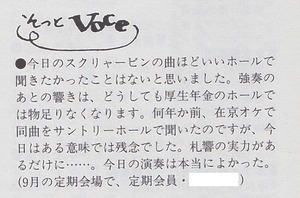 そっとVoce
●今日のスクリャービンの曲ほどいいホールで
聞きたかったことはないと思いました。強奏の
あとの響きは、どうしても厚生年金のホールで
は物足りなくなります。何年か前、在京オケで
同曲をサントリーホールで聞いたのですが、今
日はある意味では残念でした。札響の実力があ
るだけに……。今日の演奏は本当によかった。
(9月の定期会場で、定期会員・　　　　)